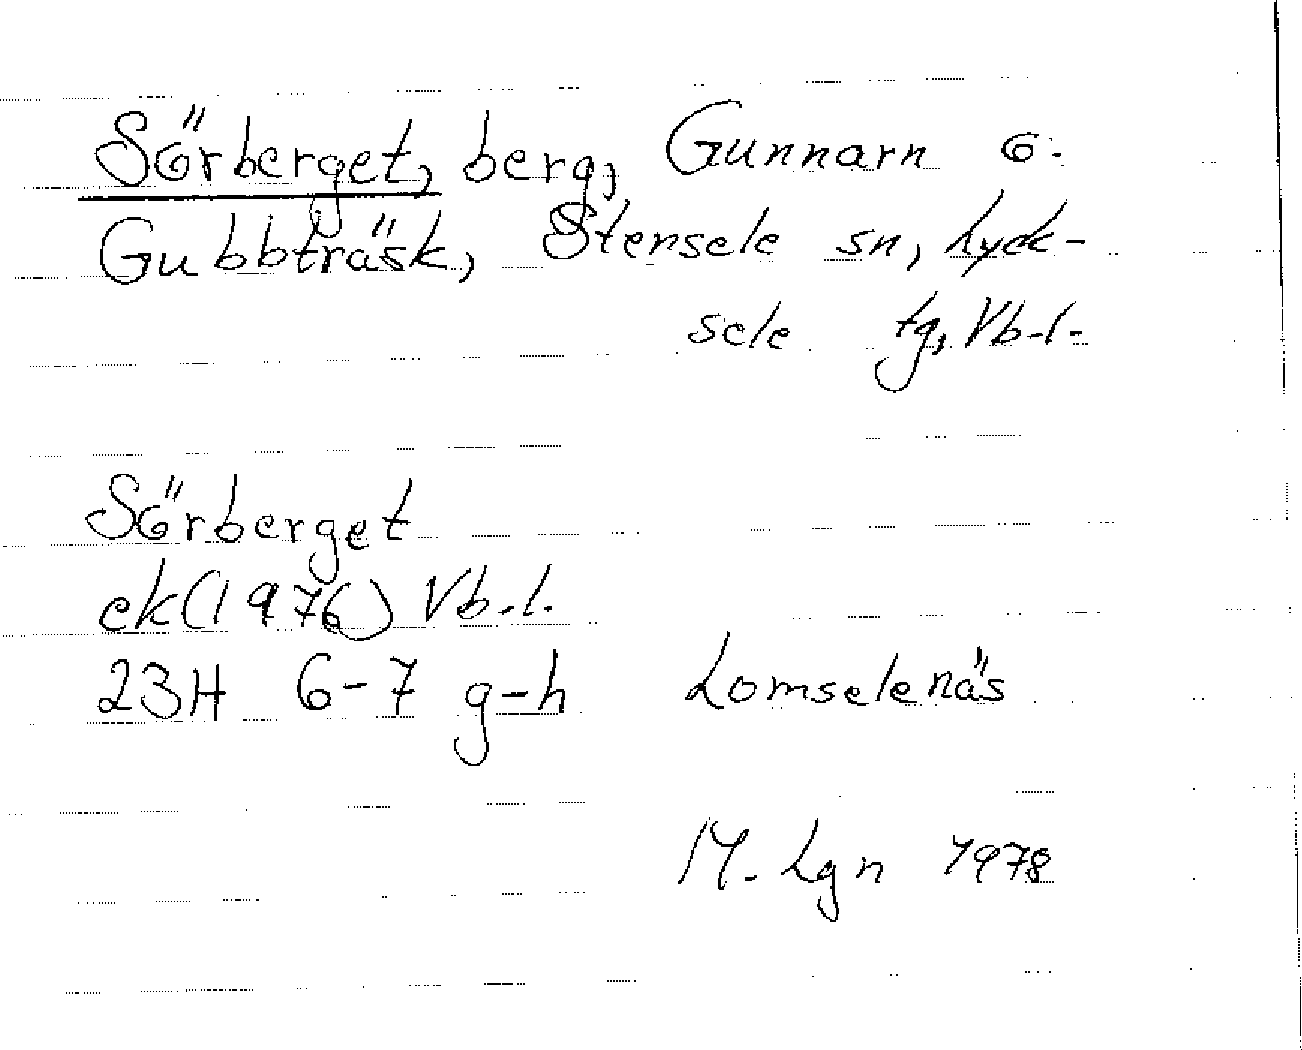 Sörberget, berg, Gunnarn o.
Gubbträsk, Stensele sn, Lyck-
sele tg, Vb.l.
Sörberget
ek (1976) Vb.l.
23H 6-7 g-h Lomselenäs
M. Lgn 1978